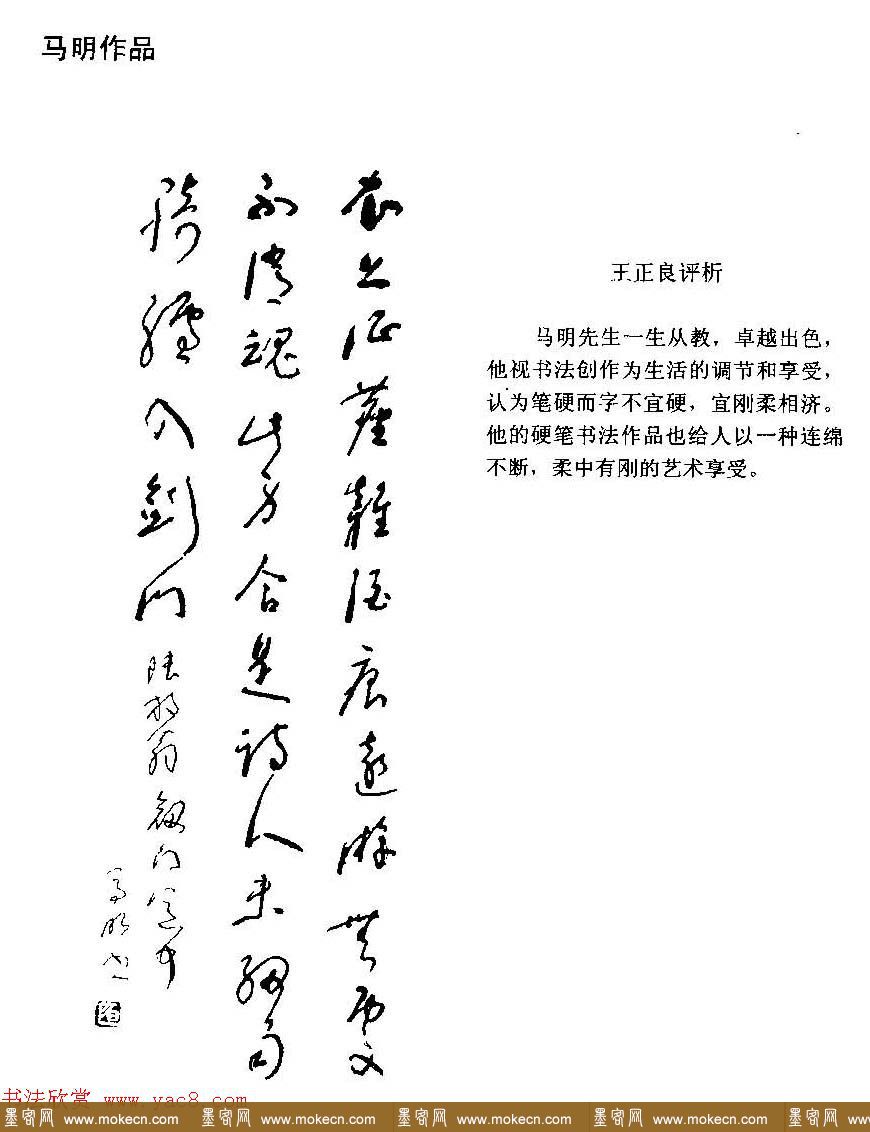 马明作品
衣上征塵雜酒痕遠游無處
不消魂此身合是詩人未細雨
騎驢入劍門 陸放翁劍門道中
馬明书
王正良评析
马明先生一生从教，卓越出色，
他视书法创作为生活的调节和享受，
认为笔硬而字不宜硬，宜刚柔相济。
他的硬笔书法作品也给人以一种连绵
不断，柔中有刚的艺术享受。
书法欣赏 www.yac8.com
墨客网 www.mokecn.com 墨客网 www.mokecn.com 墨客网 www.mokecn.com 墨客网 www.mokecn.com 墨客网